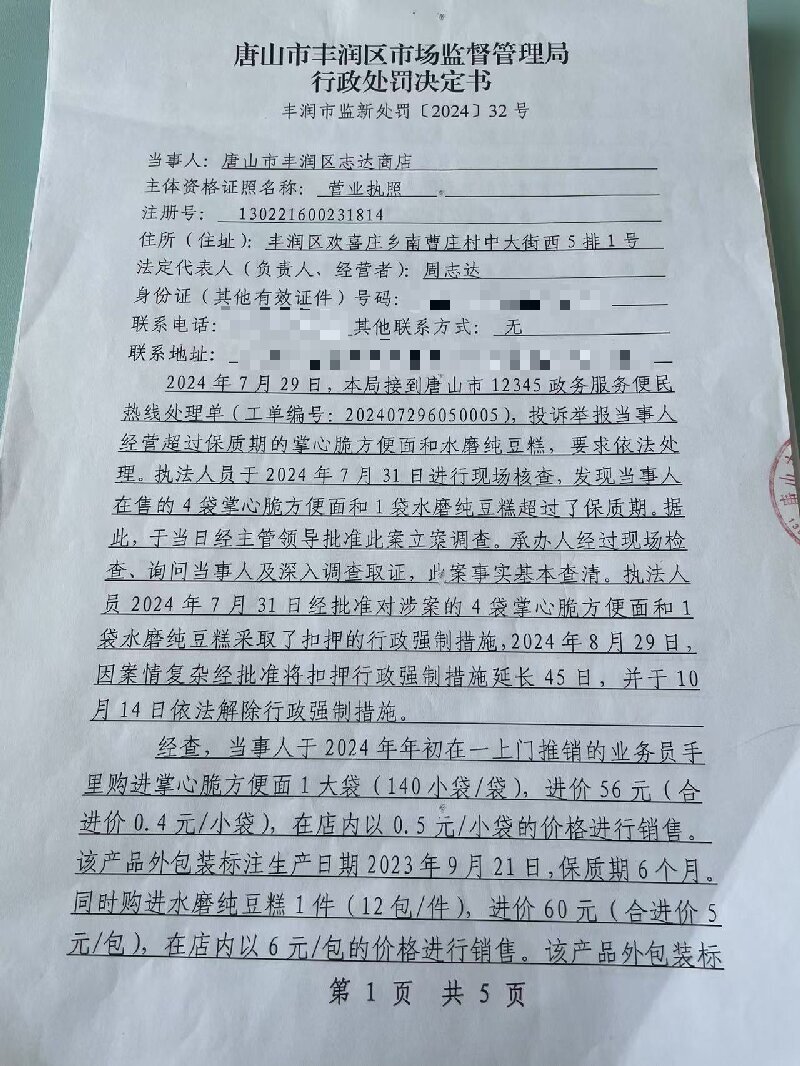 唐山市丰润区市场监督管理局
行政处罚决定书
丰润市监新处罚〔2024〕32号
当事人：唐山市丰润区志达商店
主体资格证照名称：营业执照
注册号：130221600231814
住所（住址）：丰润区欢喜庄乡南曹庄村中大街西5排1号
法定代表人（负责人、经营者）：周志达
身份证（其他有效证件）号码：
联系电话： 其他联系方式：无
联系地址：
2024年7月29日，本局接到唐山市12345政务服务便民
热线处理单（工单编号：202407296050005），投诉举报当事人
经营超过保质期的掌心脆方便面和水磨纯豆糕，要求依法处
理。执法人员于2024年7月31日进行现场核查，发现当事人
在售的4袋掌心脆方便面和1袋水磨纯豆糕超过了保质期。据
此，于当日经主管领导批准此案立案调查。承办人经过现场检
查、询问当事人及深入调查取证，此案事实基本查清。执法人
员2024年7月31日经批准对涉案的4袋掌心脆方便面和1
袋水磨纯豆糕采取了扣押的行政强制措施，2024年8月29日，
因案情复杂经批准将扣押行政强制措施延长45日，并于10
月14日依法解除行政强制措施。
经查，当事人于2024年年初在一上门推销的业务员手
里购进掌心脆方便面1大袋（140小袋/袋），进价56元（合
进价0.4元/小袋），在店内以0.5元/小袋的价格进行销售。
该产品外包装标注生产日期2023年9月21日，保质期6个月。
同时购进水磨纯豆糕1件（12包/件），进价60元（合进价5
元/包），在店内以6元/包的价格进行销售。该产品外包装标
第1页 共5页